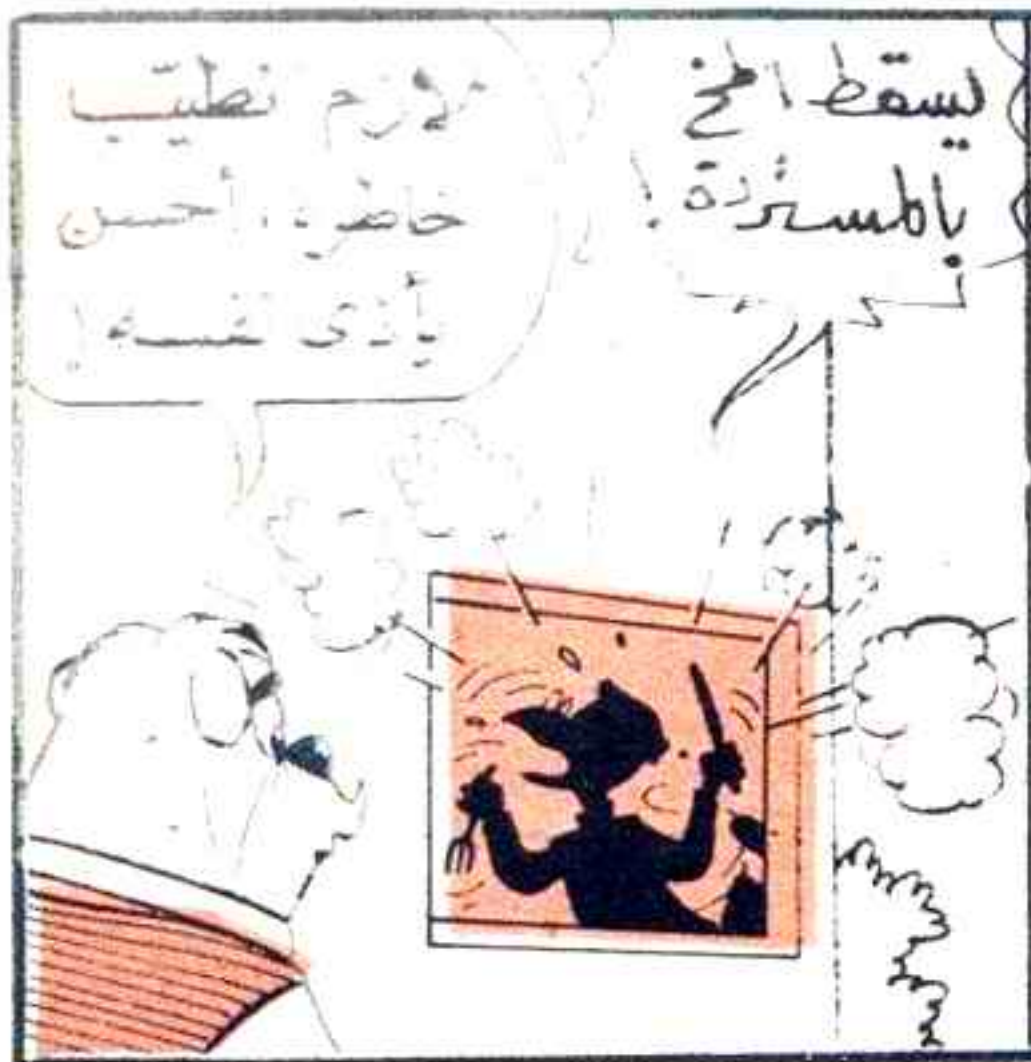 يسقط المخ
بالمستردة!
لازم نطيّب
خاطره، أحسن
يأذى نفسه!